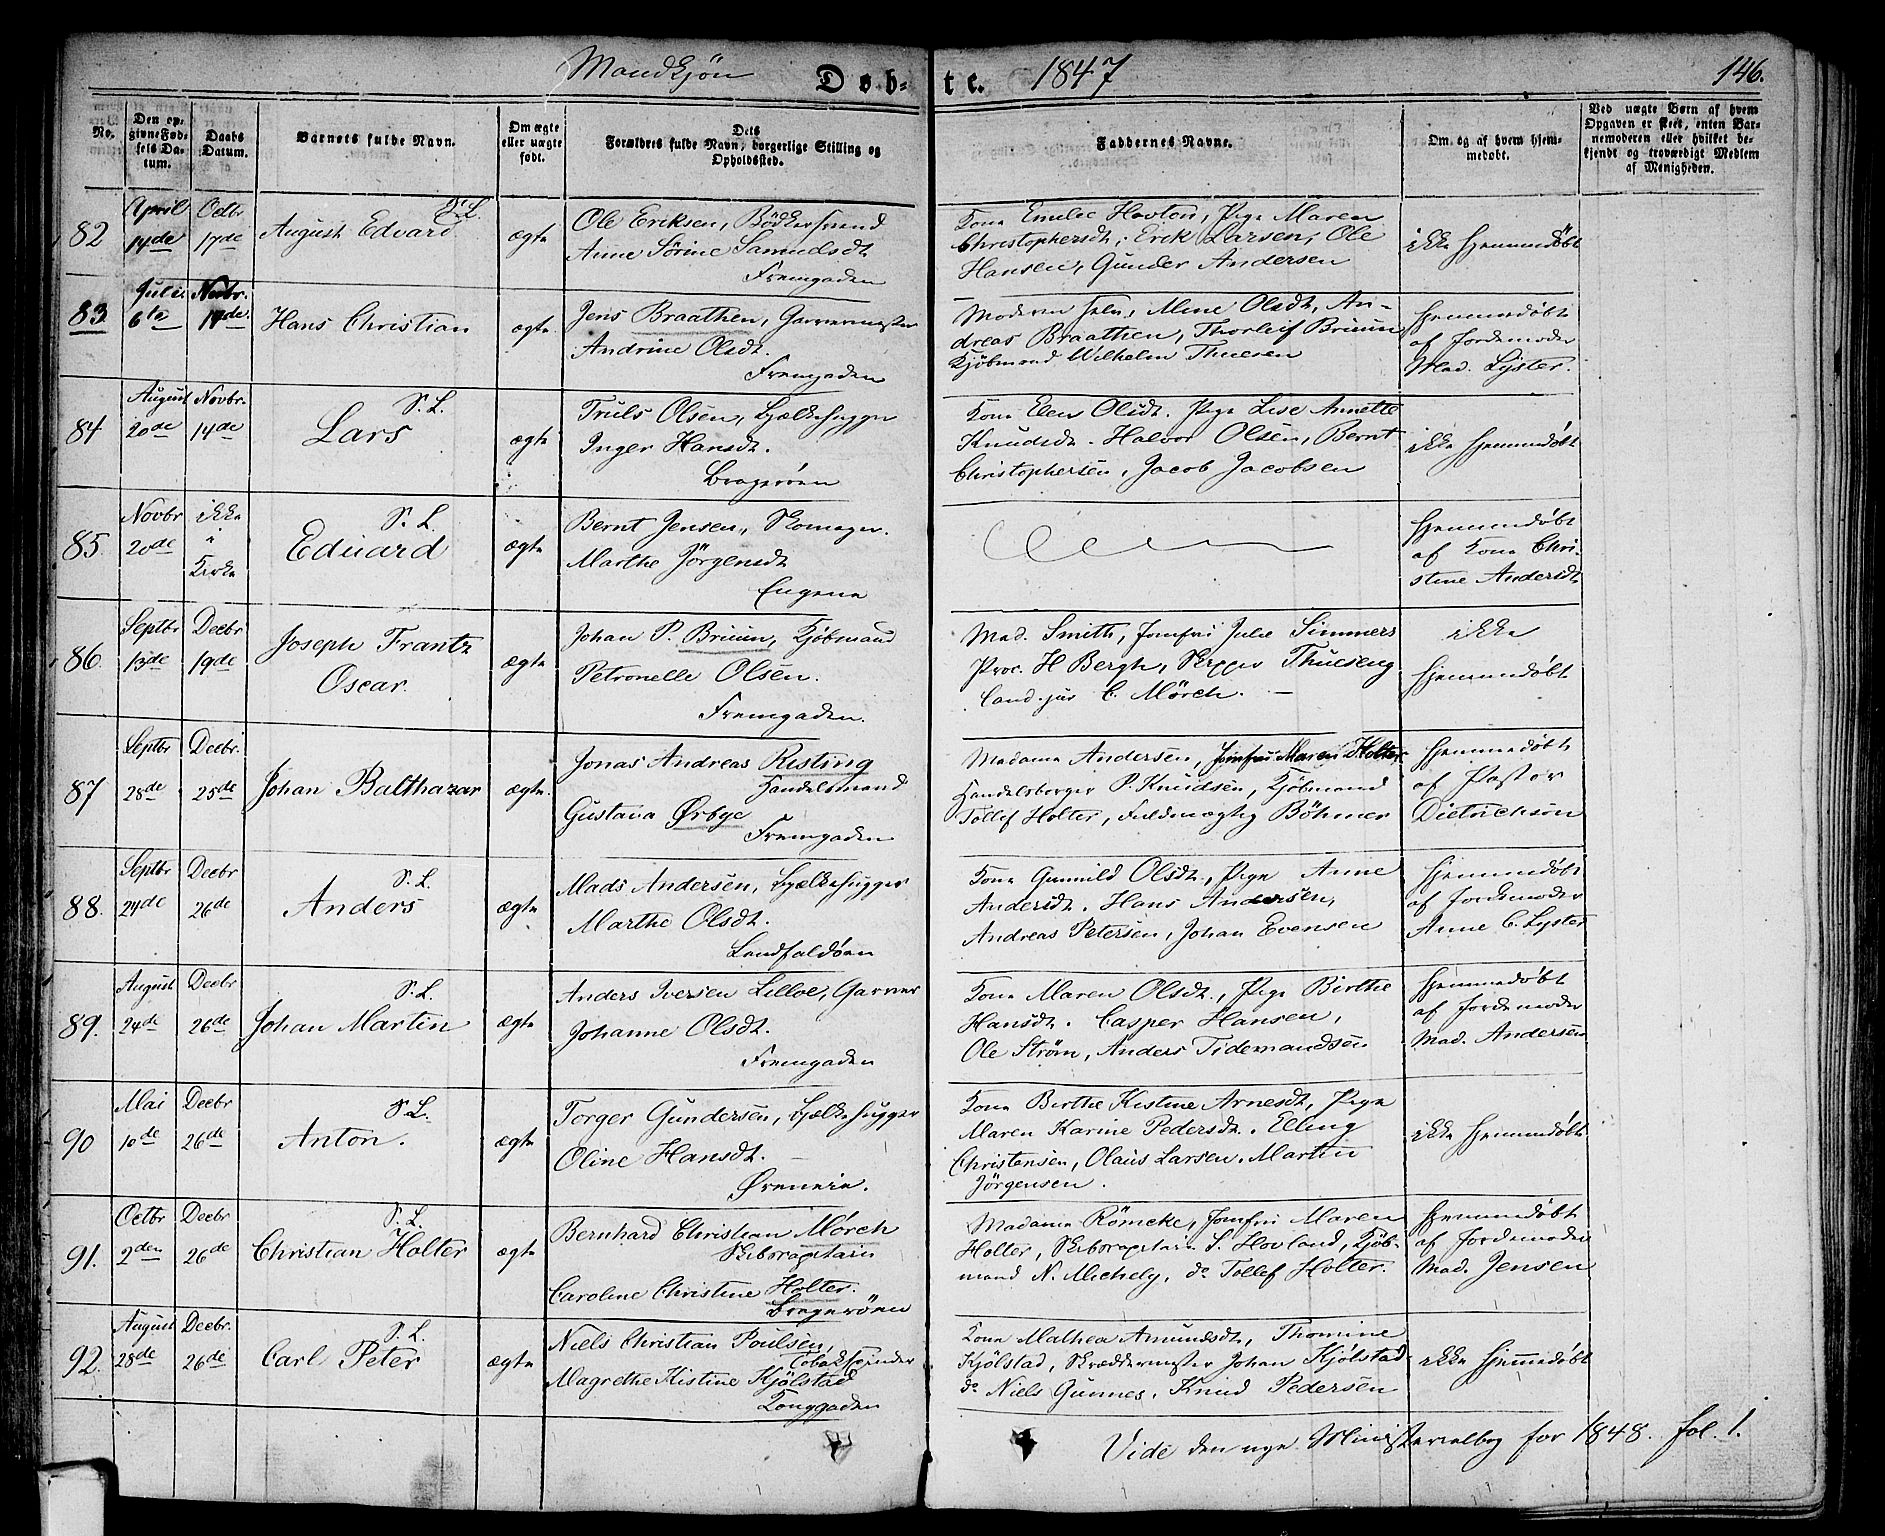 Mandkjøn Døb- te. 1847 146.
No.
Den op-
givne Fød-
sels Da-
tum.
Daabs
Datum.
Barnets fulde Navn.
Om ægte
eller uægte
født.
Dets
Forældres fulde Navn, borgerlige Stilling og
Opholdssted.
Faddernes Navne.
Om og af hvem hjem-
medøbt.
Ved uægte Børn af hvem
Opgaven er skeet, enten Bar-
nemoderen eller hvilket be-
kjendt og troværdigt Medlem
af Menigheden.
82
April
14de
Octbr
17de
S. L.
August Edvard
ægte
Ole Eriksen, Bødkersvend
Anne Sörine Samuelsdt
Fremgaden
Kone Emilie Hovton, Pige Maren
Christophersdt, Erik Larsen, Ole
Hansen, Gunder Andersen
ikke hjemmedöbt
83
Juli
6te
Novbr.
14de
Hans Christian
ægte
Jens Braathen, Garvermester
Andrine Olsdt.
Fremgaden
Moderen selv, Mine Olsdt, An-
dreas Braathen, Thorleif Bruun
Kjöbmand Wilhelm Thuesen
hjemmedöbt
af Jordemoder
Mad. Lyster.
84
August
20de
Novbr.
14de
S. L.
Lars
ægte
Truls Olsen, Bjælkehugger
Inger Hansdt.
Bragerøen
Kone Elen Olsdt. Pige Lise Annette
Knudsdt. Halvor Olsen, Bernt
Christophersen, Jacob Jacobsen
ikke hjemmedöbt
85.
Novbr
20de
ikke
i
Kirke
S. L.
Edvard
ægte
Bernt Jensen, Skomager.
Marthe Jörgensdt
Engene
hjemmedöbt
af Kone Chri-
stine Andersdt
86.
Septbr
13de
Decbr
19de
Joseph Frantz
Oscar.
ægte
Johan P. Bruun, Kjöbmand
Petronelle Olsen.
Fremgaden.
Mad. Smith, Jomfru Julie Simmers
Proc. H Bergh, Skipper Thueseng
Cand. jur C. Mörch.
ikke
hjemmedöbt
87
Septbr
28de
Decbr.
25de
Johan Balthazar
ægte.
Jonas Andreas Risting
Handelsmand
Gustava Ørbye
Fremgaden
Madame Andersen, Jomfru Maren Holter
Handelsborger P. Knudsen, Kjöbmand
Tollef Holter, Fuldmægtig Böhmer
hjemmedöbt
af Pastor
Dietrichson
88.
Septbr
24de
Decbr
26de
S. L.
Anders
ægte
Mads Andersen, Bjælkehugger
Marthe Olsdt.
Landfaldöen
Kone Gunnild Olsdt., Pige Anne
Andersdt. Hans Andersen,
Andreas Petersen, Johan Evensen
hjemmedöbt
af Jordemoder
Anne C. Lyster
89.
August
24de
Decbr
26de
S. L.
Johan Martin
ægte
Anders Iversen Lilloe, Garver
Johanne Olsdt.
Fremgaden
Kone Maren Olsdt., Pige Birthe
Hansdt. Casper Hansen,
Ole Ström, Anders Tidemandsen
hjemmedöbt
af Jordemoder
Mad. Andersen
90
Mai
10de
Decbr
26de
S. L.
Anton.
ægte
Torger Gundersen, Bjælkehugger
Oline Hansdt.
Øreneie.
Kone Birthe Kistine Arnesdt, Pige
Maren Karine Pedersdt. Elling
Christensen, Olaus Larsen. Martin
Jörgensen.
ikke hjemmedöbt
91.
Octbr
2den
Decbr
26de
S. L.
Christian Holter
ægte
Bernhard Christian Mörch
Skibscapitain
Caroline Christine Holter.
Bragerøen
Madame Römcke, Jomfru Maren
Holter, Skibscapitain S. Hovland, Kjöb-
mand N. Michely, do Tollef Holter.
hjemmedöbt
af Jordemoder
Mad. Jensen
92.
August
28de
Decbr.
26de
S. L.
Carl Peter
ægte
Niels Christian Poulsen,
Tobakspinder
Magrethe Kistine Kjölstad
Konggaden
Kone Mathea Amundsdt, Thomine
Kjölstad, Skræddermester Johan Kjölstad
do Niels Gunnes. Knud Pedersen
ikke hjemmedöbt
Vide den nye Ministerialbog for 1848. fol. 1.